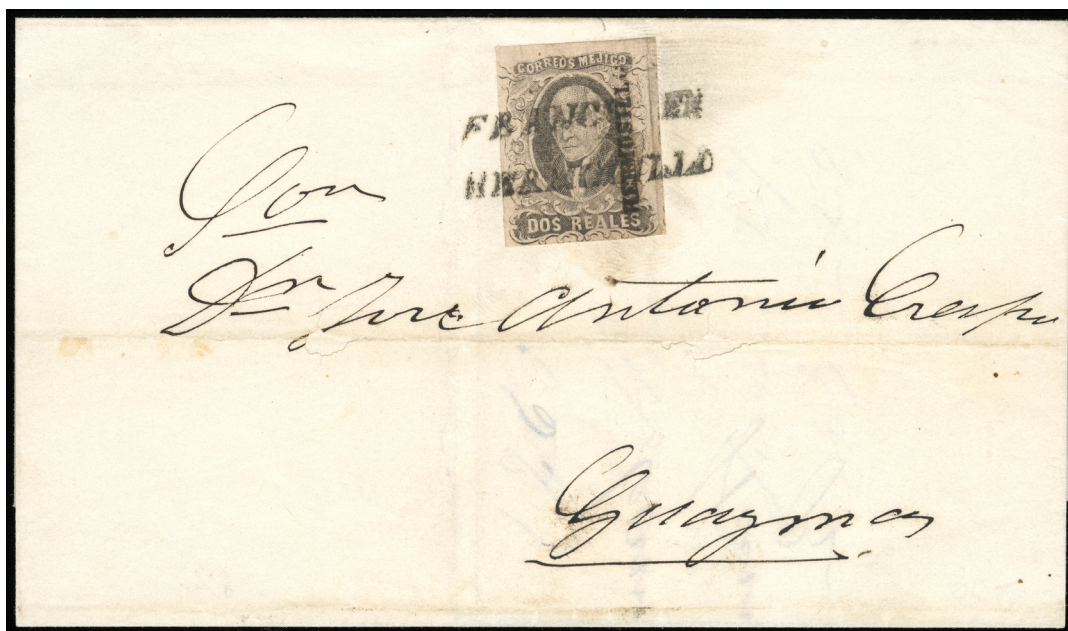 CORREOS MEJICO
HERMOSILLO
DOS REALES
FRANCO EN
HERMOSILLO
Sor
Dn Jose Antonio Crespo
Guaymas